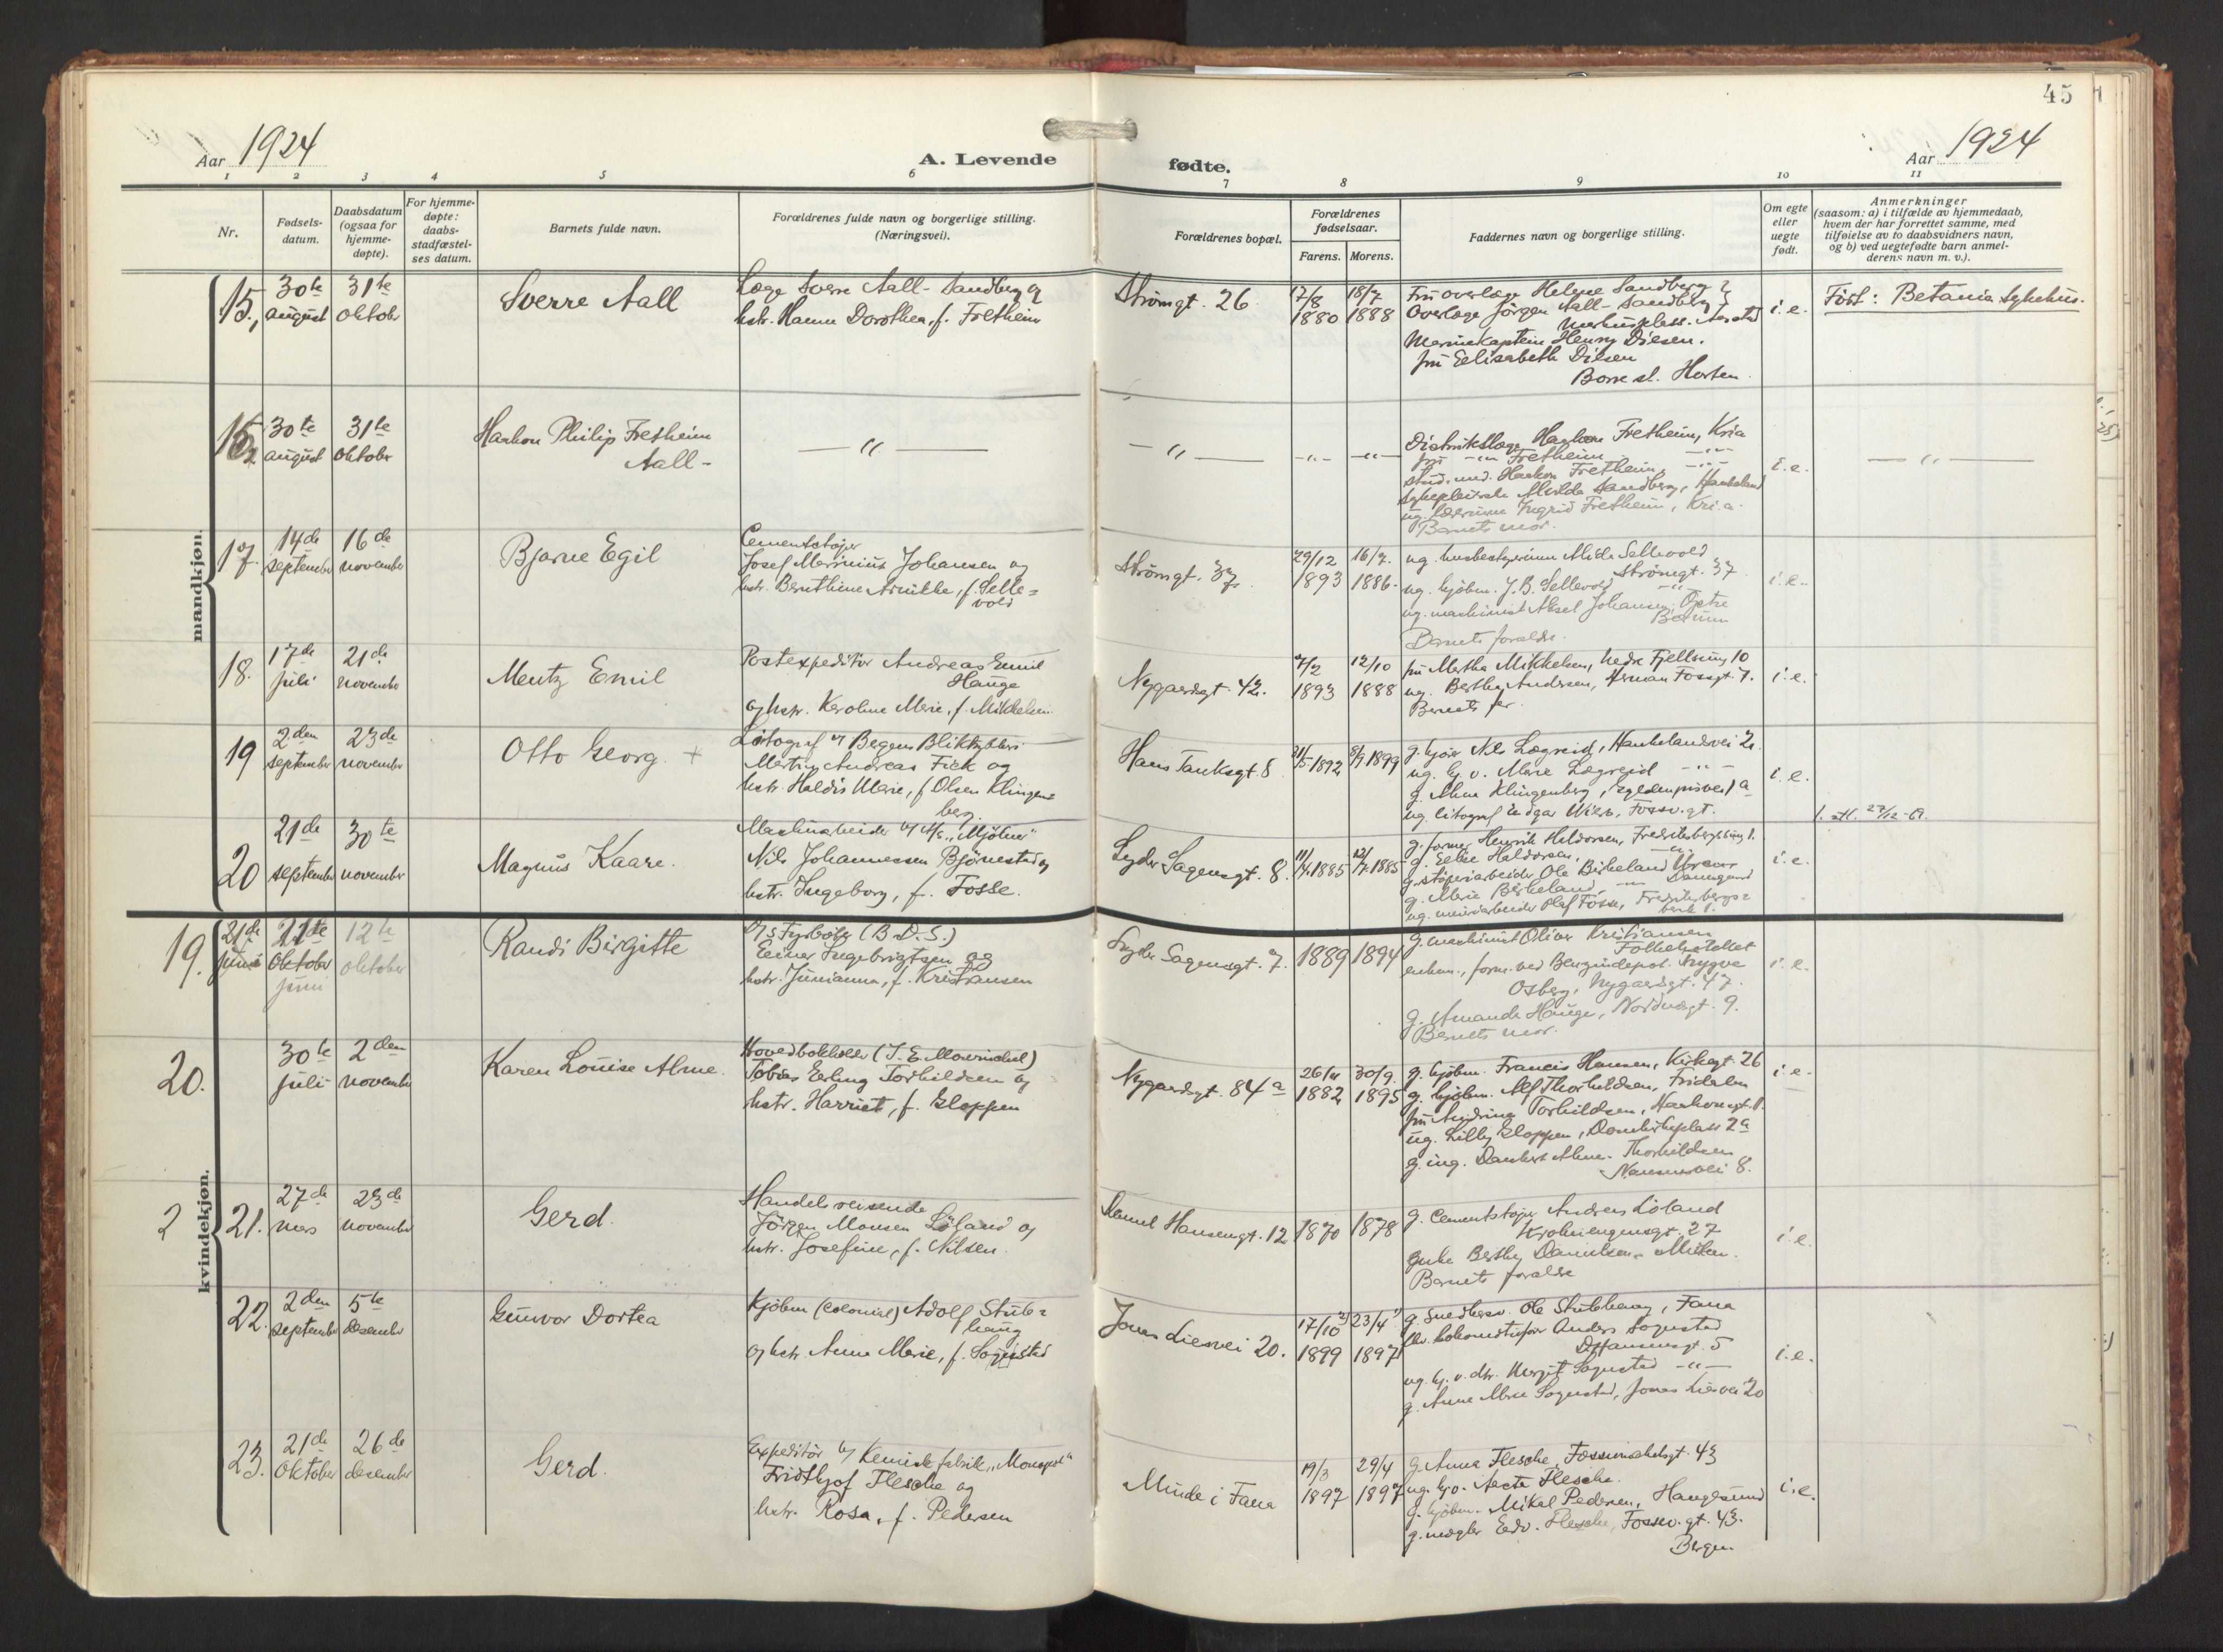 45
Aar 1924
A. Levende
fødte.
Aar 1924
1 2 3 4 5 6 7 8 9 10 11
Nr.
Fødsels-
datum.
Daabsdatum
(ogsaa for
hjemme-
døpte).
For hjemme-
døpte:
daabs-
stadfæstel-
ses datum.
Barnets fulde navn.
Forældrenes fulde navn og borgerlige stilling.
(Næringsvei).
Forældrenes bopæl.
Forældrenes
fødselsaar.
Farens. Morens.
Faddernes navn og borgerlige stilling.
Om egte
eller
uegte
født.
Anmerkninger
(saasom: a) i tilfælde av hjemmedaab,
hvem der har forrettet samme, med
tilføielse av to daabsvidners navn,
og b) ved uegtefødte barn anmel-
derens navn m. v.).
mandkjøn.
15.
30te august
31te oktober
Sverre Aall
Læge Sverre Aall-Sandberg og
hstr. Hanna Dorothea, f. Fretheim
Strømgt. 26
17/8 1880
18/7 1888
Fru overlæge Helgne Sandberg
Overlæge Jørgen Aall-Sandberg
Marinekaptein Henry Diesen.
fru Eelisabeth Diesen
Borre st. Horten.
i. e.
Föst: Betania sykehus.
16.
30te august
31te oktober
Haakon Philip Fretheim
Aall-
— " —
— " —
— " —
— " —
Distriktslæge Haakon Fretheim, Kria
fru — " — Fretheim — " —
stud. med. Haakon Fretheim, — " —
Sandberg, Haukeland
ug. lærerinne Ingrid Fretheim, Kri.a.
Barnets mor.
i. e.
— " —
17.
14de september
16de november
Bjarne Egil
Cementstøper
Josef Marinius Johansen og
hstr. Benthine Arnikke, f. Selle=
vold
Strömgt. 37
29/12 1893
16/7. 1886.
ug. husbestyrerinne Alida Sellevold
Strömgt. 37
ug. kjöbm. J. B. Sellevold — " —
ug. maskinist Aksel Johansen,
Barnets forældre.
i. e.
18.
17de juli
21de november
Mentz Emil
Postexpeditör Andreas Emil
Hauge
og hstr. Karoline Marie, f. Mikkelsen
Nygaardsgt. 42.
7/2 1893
12/10 1888
fru Martha Mikkelsen, Nedre Fjellsmug 10
ug. Berthe Andersen, Herman Fossgt. 7.
Barnets far
i. e.
19
2den september
23de november
Otto Georg +
Litograf v/ Bergens Bliktrykkeri
Martin Andreas Fick og
hstr. Haldis Marie, f. Olsen Klingen=
berg.
Hans Tanksgt. 8
21/5. 1892
8/9. 1899
g. kjör Nils Lægreid, Haukelandsvei 2
ug. kj. v. Marie Lægreid — " —
g. Alma Klingenberg,
ug. litograf Edgar Wiers, Fossv. gt.
i. e.
1. att. 27/12-61.
20
21de september
30te november
Magnus Kaare.
Maskinarbeider v/ A/s. "Mjölner"
Nils Johannessen Björnestad og
hstr. Ingeborg, f. Fosse.
Lyder Sagensgt. 8.
11/4. 1885
12/7. 1885
g. former Henrik Haldorsen, Fredriksbergsmug 1.
g. Eelise Haldorsen, — " —
g. støperiarbeider Ole Birkeland
g. Marie Birkeland, — " — Damsgaard
ug. Olaf Fosse, Fredriksbergs=
i. e.
kvindekjøn.
19.
21de juni
21de oktober juni
12te oktober
Randi Birgitte
D/s Fyrböter (B. D. S.)
Einar Ingebrigtsen og
hstr. Junianna, f. Kristiansen
Lyder Sagensgt. 7.
1889
1894
g. maskinist Oliver Kristiansen
enkem., form. ved Benzindepot. Trygve
Osberg, Nygaardsgt. 47.
g. Amanda Hauge, Nordnesgt. 9.
Barnets mor.
i. e.
20.
30te juli
2den november
Karen Louise Alme.
Hovedbokholder (J. E. Mowinckel)
Tobias Erling Torkildsen og
hstr. Harriet, f. Gloppen
Nygaardsgt. 84a
26/11 1882
30/9. 1895
g. kjöbm. Francis Hansen, Kirkegt. 26
g. kjöbm. Alf Thorkildsen, Fridalen
fru Andrina Torkildsen, Haakonsgt. 1.
ug. Lilly Gloppen, Domkirkeplass 2a
g. ing. Dankert Alme-Thorkildsen
Nansensvei 8.
i. e.
2
21.
27de mars
23de november
Gerd.
Handelsreisende
Jörgen Monsen Löland og
hstr. Josefine, f. Nilsen.
Hansengt. 12
1870
1878
g. Cementstøper Andreas Löland
Krohnengensgt. 27
enke Berthe Danielsen,
Barnets forældre
i. e.
22.
2den september
5te desember
Gunvor Dortea
Kjöbm. (Colonial) Adolf Stub=
haug
og hstr. Anna Marie, f. Sognstad
Jonas Liesvei 20.
17/10 1899
23/4 1897
g. snedkerm. Ole Stubhaug, Fana
lokomotivför Anders Sognstad
Hansensgt. 5
ug. kj. v. dtr. Margit Sognstad — " —
g. Anna Marie Sognstad, Jonas Liesvei 20
i. e.
23.
21de oktober
26de desember
Gerd.
Expeditör v/ Kemisk fabrik "Monopol"
Fridthjof Flesche og
hstr. Rosa, f. Pedersen
Minde i Fana
19/3 1897
29/4 1897
g. Anna Flesche, Fosswinckelsgt. 43
ug. kjv. Aasta Flesche.
g. kjöbm. Mikal Pedersen, Haugesund
g. mægler Edv. Flesche, Fossw. gt. 43.
Bergen
i. e.